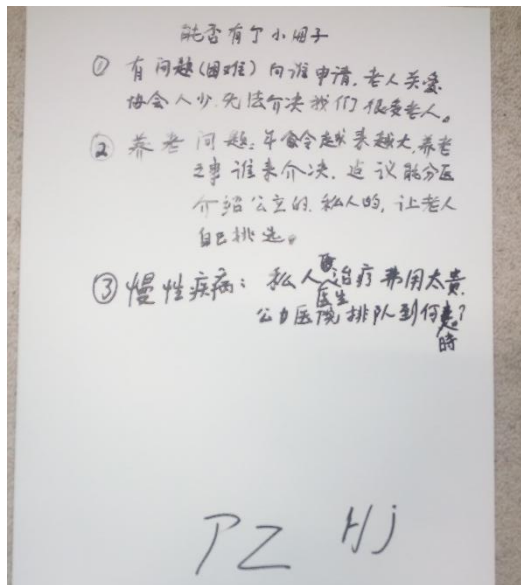 能否有个小册子
① 有问题(困难)向谁申请,老人关爱
协会人少,无法介决我们很多老人。
② 养老问题:年龄越来越大,养老
之事谁来介决,建议能分区
介绍公立的,私人的,让老人
自己挑选。
③ 慢性疾病:私人医生治疗费用太贵,
公力医院排队到何時?
PZ Hj